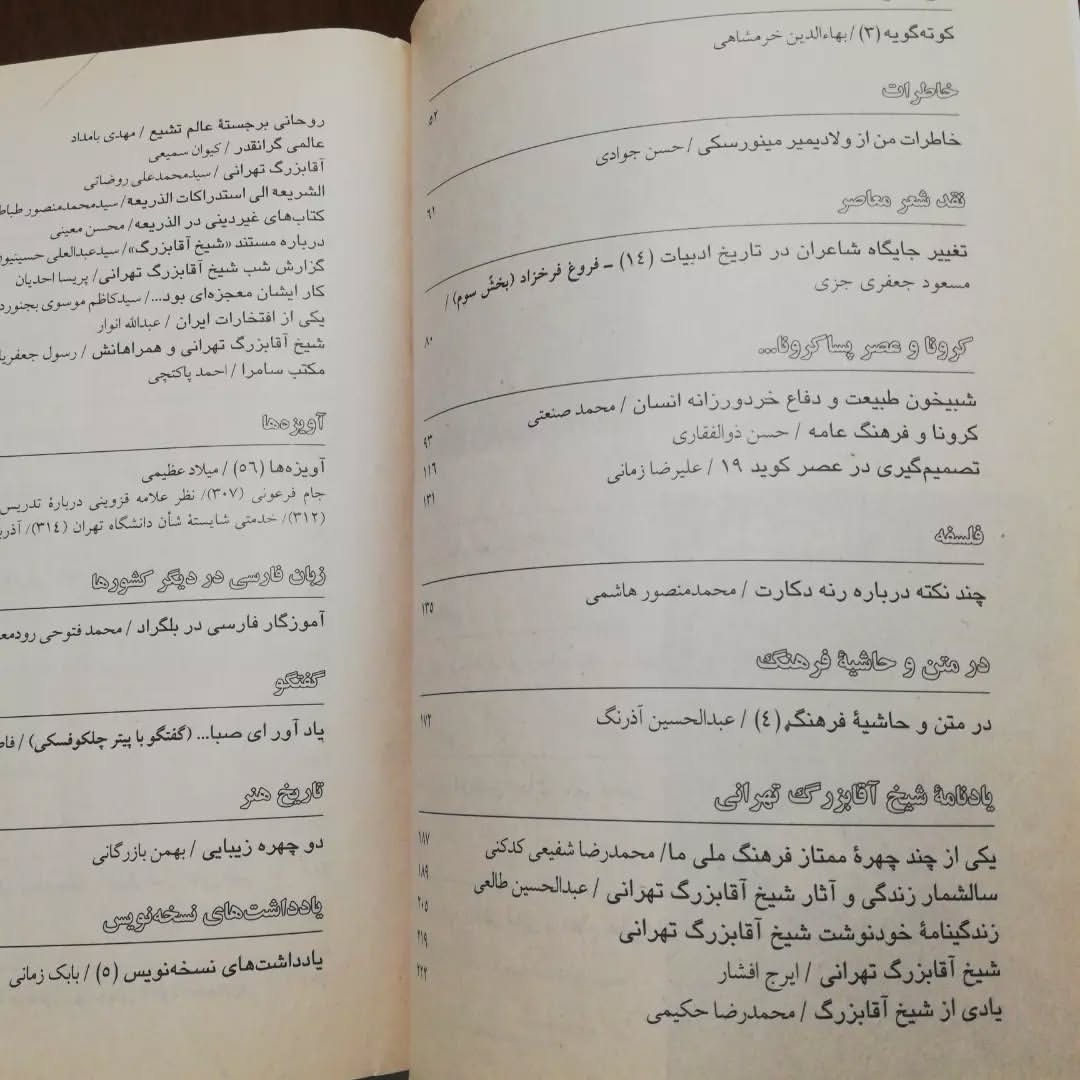 کوته‌گویه (۳) / بهاءالدین خرمشاهی
خاطرات
۵۲
خاطرات من از ولادیمیر مینورسکی / حسن جوادی
نقد شعر معاصر
۶۱
تغییر جایگاه شاعران در تاریخ ادبیات (۱۴) ـ فروغ فرخزاد (بخش سوم) /
مسعود جعفری جزی
کرونا و عصر پساکرونا...
۸۰
شبیخون طبیعت و دفاع خردورزانه انسان / محمد صنعتی
کرونا و فرهنگ عامه / حسن ذوالفقاری ۹۳
تصمیم‌گیری در عصر کوید ۱۹ / علیرضا زمانی ۱۱۶
۱۳۱
فلسفه
چند نکته درباره رنه دکارت / محمدمنصور هاشمی ۱۳۵
در متن و حاشیهٔ فرهنگ
در متن و حاشیهٔ فرهنگ (۴) / عبدالحسین آذرنگ ۱۷۲
یادنامهٔ شیخ آقابزرگ تهرانی
یکی از چند چهرهٔ ممتاز فرهنگ ملی ما / محمدرضا شفیعی کدکنی ۱۸۷
سالشمار زندگی و آثار شیخ آقابزرگ تهرانی / عبدالحسین طالعی ۱۸۹
زندگینامهٔ خودنوشت شیخ آقابزرگ تهرانی ۲۰۵
شیخ آقابزرگ تهرانی / ایرج افشار ۲۱۹
یادی از شیخ آقابزرگ / محمدرضا حکیمی ۲۲۲
روحانی برجستهٔ عالم تشیع / مهدی بامداد
عالمی گرانقدر / کیوان سمیعی
آقابزرگ تهرانی / سیدمحمدعلی روضاتی
الشریعه الی استدراکات الذریعه / سیدمحمدمنصور طباط
کتاب‌های غیردینی در الذریعه / محسن معینی
درباره مستند «شیخ آقابزرگ» / سیدعبدالعلی حسینیون
گزارش شب شیخ آقابزرگ تهرانی / پریسا احدیان
کار ایشان معجزه‌ای بود... / سیدکاظم موسوی بجنورد
یکی از افتخارات ایران / عبدالله انوار
شیخ آقابزرگ تهرانی و همراهانش / رسول جعفریا
مکتب سامرا / احمد پاکتچی
آویزه‌ها
آویزه‌ها (۵۶) / میلاد عظیمی
جام فرعونی (۳۰۷)/ نظر علامه قزوینی دربارهٔ تدریس
(۳۱۲)/ خدمتی شایستهٔ شأن دانشگاه تهران (۳۱۴)/ آذربا
زبان فارسی در دیگر کشورها
آموزگار فارسی در بلگراد / محمد فتوحی رودمع
گفتگو
یاد آور ای صبا... (گفتگو با پیتر چلکوفسکی) / فاط
تاریخ هنر
دو چهره زیبایی / بهمن بازرگانی
یادداشت‌های نسخه‌نویس
یادداشت‌های نسخه‌نویس (۵) / بابک زمانی